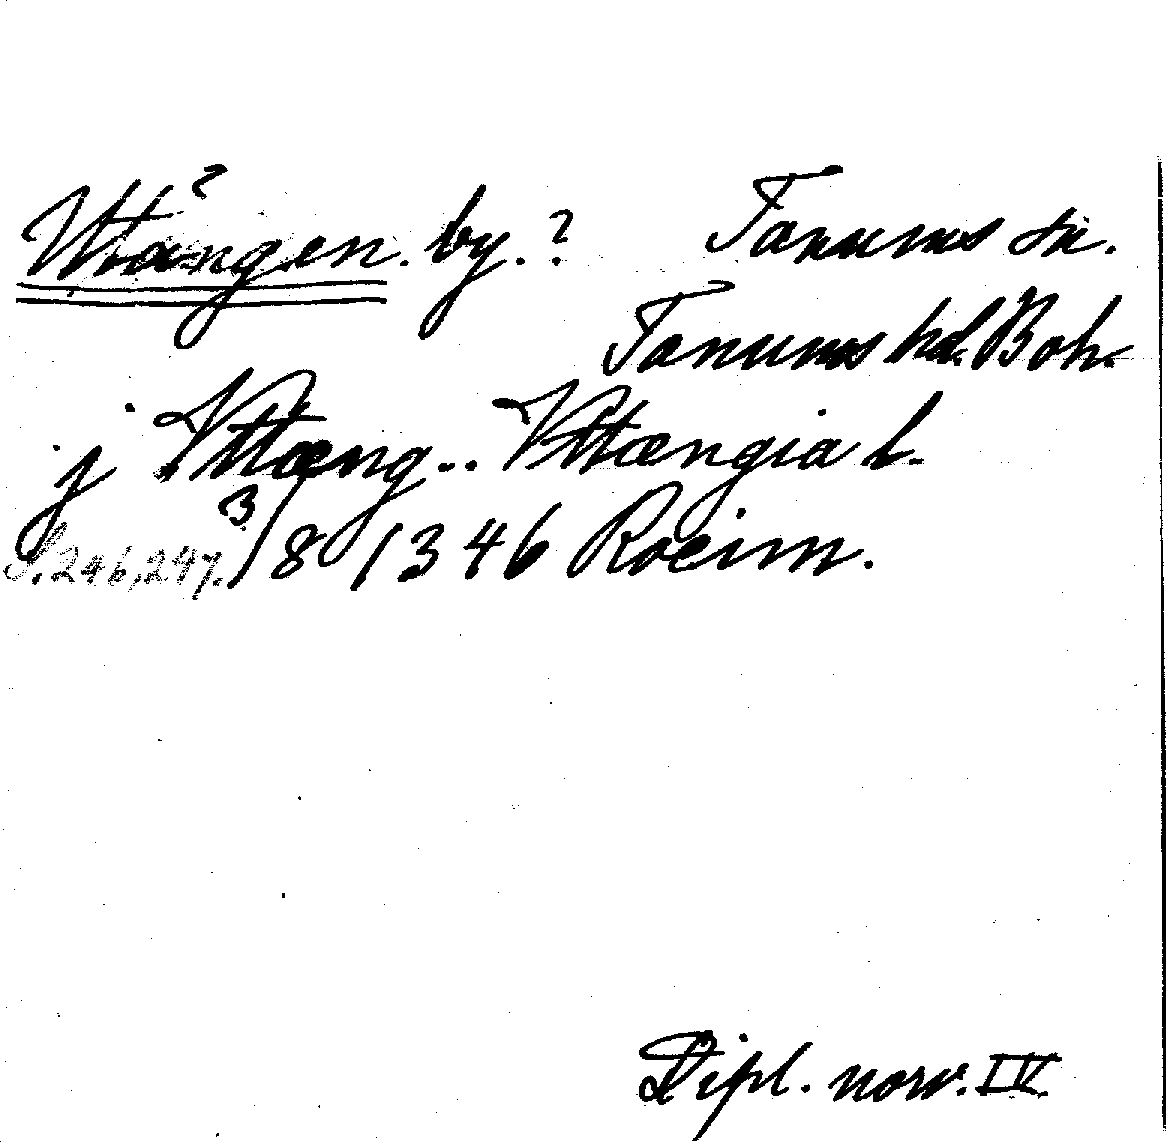 Utängen. by.? Tanums sn.
Tanums hd. Boh.
j Vttæng.. Vttængia l.
S. 246, 247. 3/8 1346 Roeim.
Dipl. norv. IV.